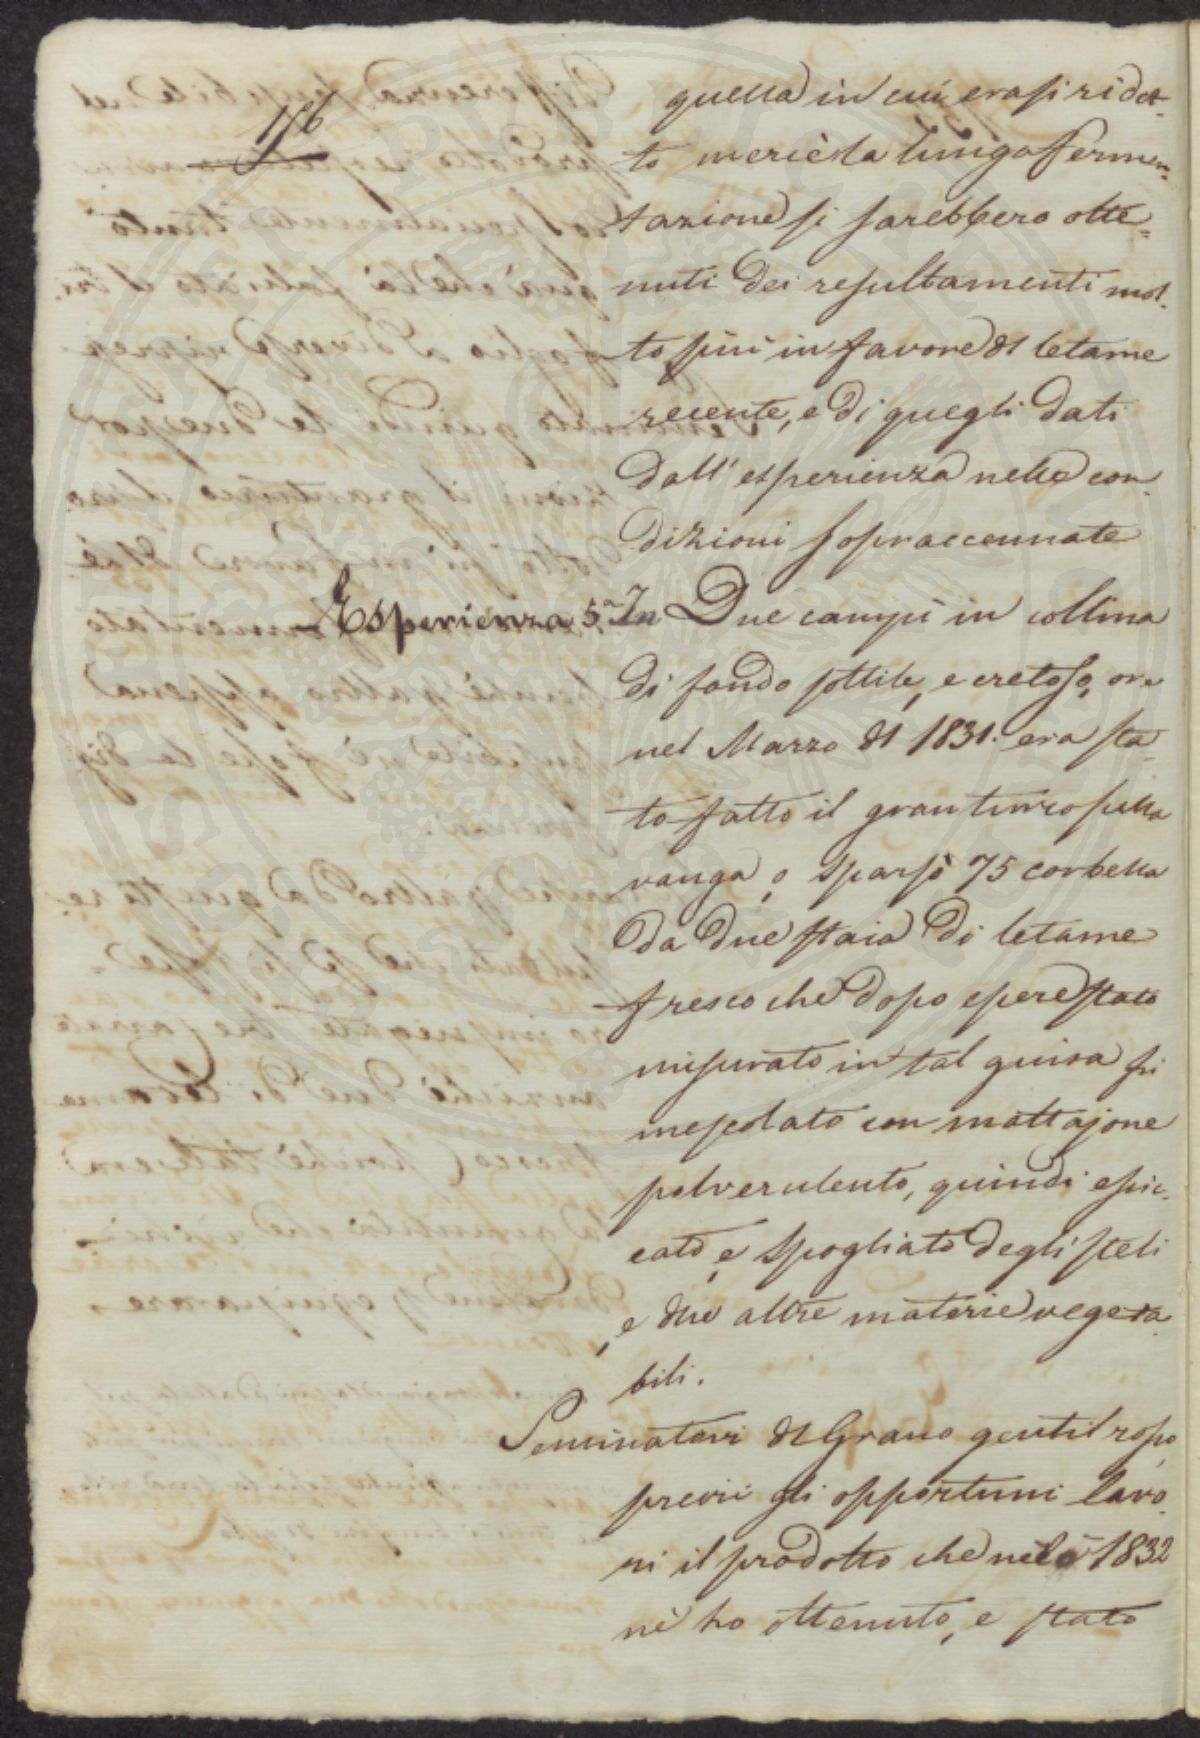 156
quella in cui erasi ridot-
to mercè la lunga fermen=
tazione si sarebbero otte=
nuti dei resultamenti mol-
to piu in favore dl letame
recente, e di quegli dati
dall' esperienza nelle con-
dizioni sopraccennate
Esperienza 5.a In Due campi in collina
di fondo sottile, e cretoso, ove
nel Marzo dl 1831. era sta-
to fatto il granturco sulla
vanga, e sparso 75 corbella
da due staia di letame
fresco che dopo essere stato
misurato in tal guisa fu
mescolato con mattajone
polverulento, quindi essic-
cato, e spogliato degli steli
e dlle altre materie vegeta-
bili.
Seminatovi dl Grano gentil rosso
previi gli opportuni lavo-
ri il prodotto che nel 1832
nè ho ottenuto, e stato